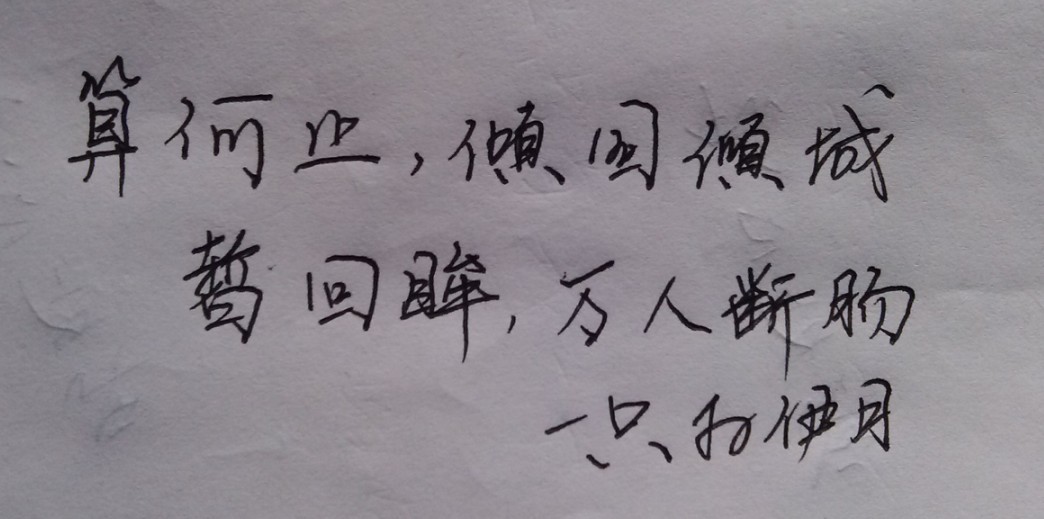 算何止,倾国倾城
暂回眸,万人断肠
一只为伊月